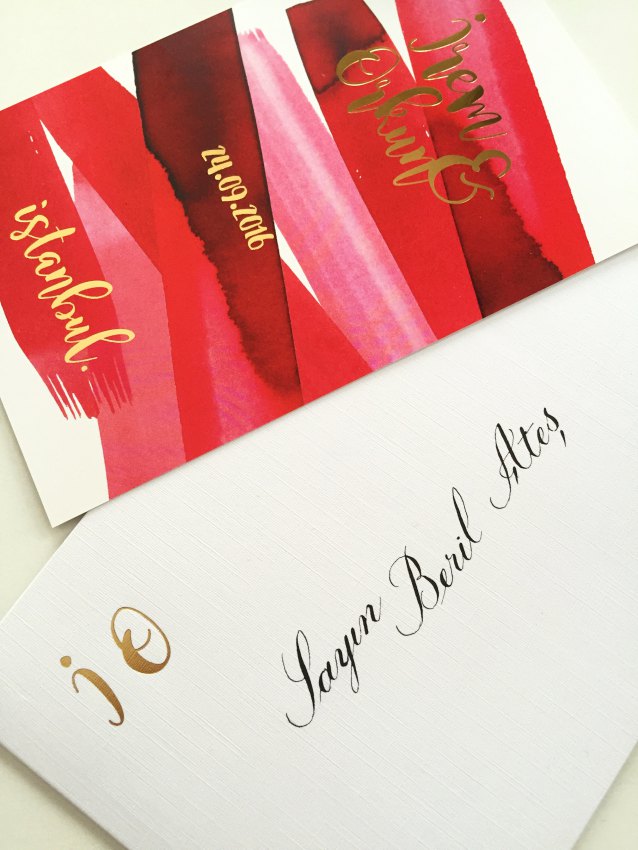 irem &
Orkun
24.09.2016
istanbul.
i O
Sayın Beril Ateş